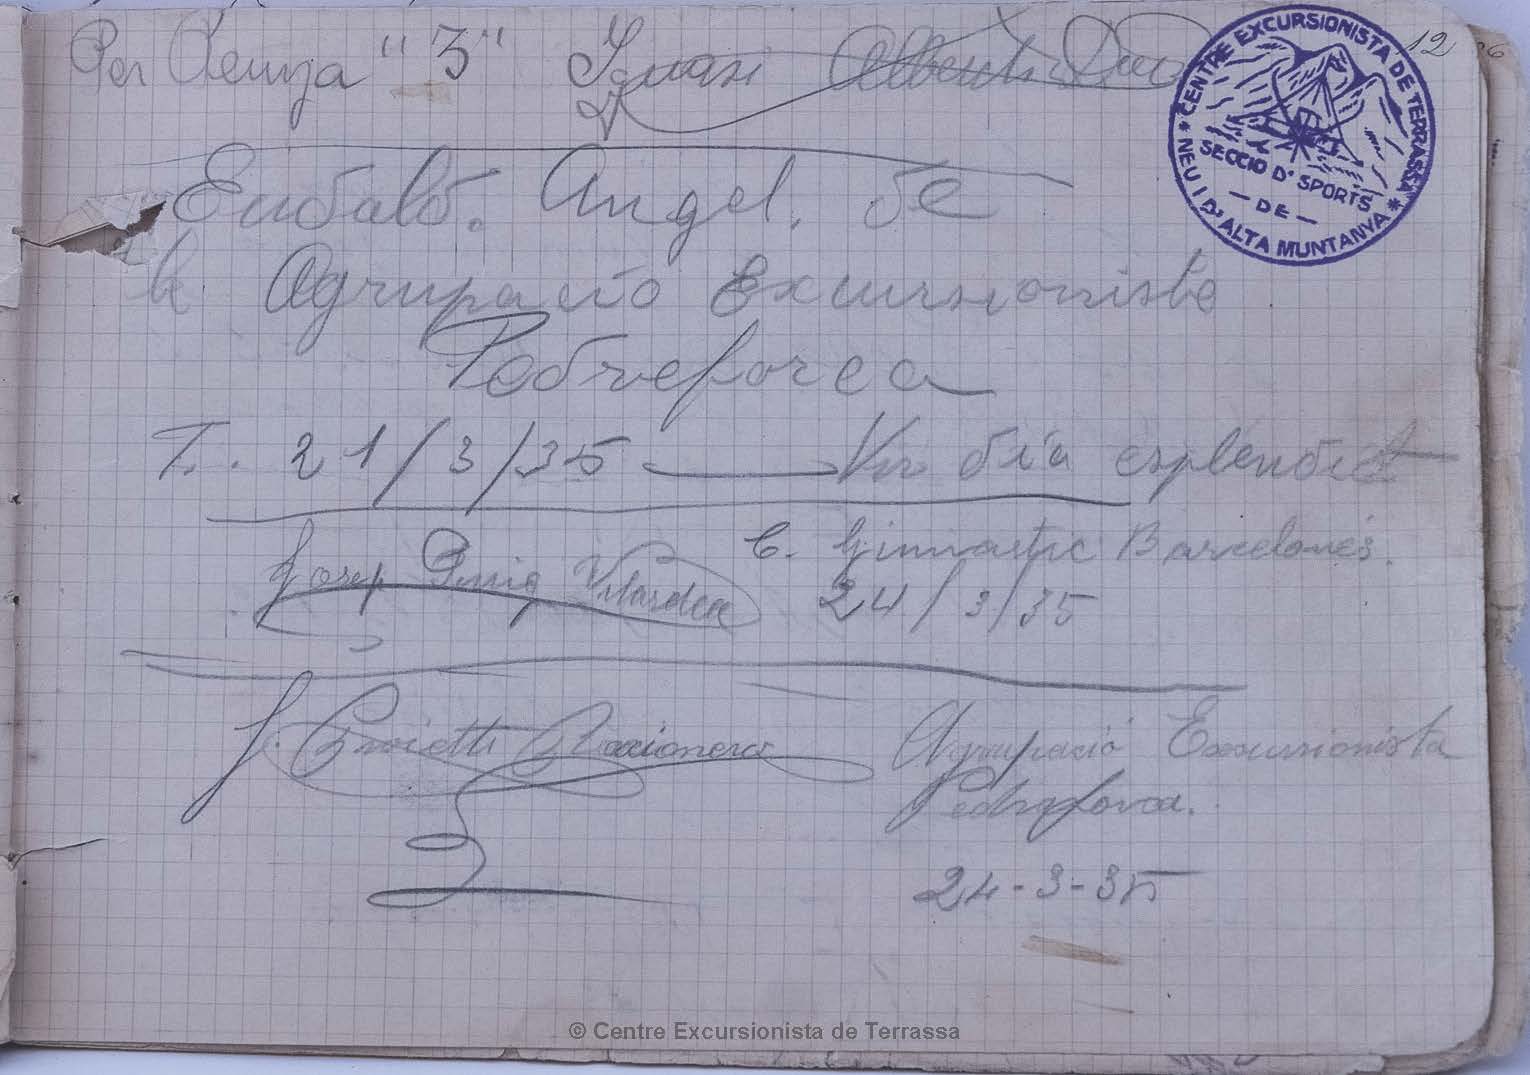 Per Penya "3" Ignasi Albert
12
CENTRE EXCURSIONISTA DE TERRASSA
SECCIO D' SPORTS
— DE —
NEU I D'ALTA MUNTANYA
Eudald. Angel. de
la Agrupació Excursionista
Pedreforca
T. 21/3/35 — Un dia esplendid
Josep Puig
C. Gimnastic Barcelonés.
24/3/35
J.
Agrupació Excursionista
Pedraforca.
24-3-35
© Centre Excursionista de Terrassa